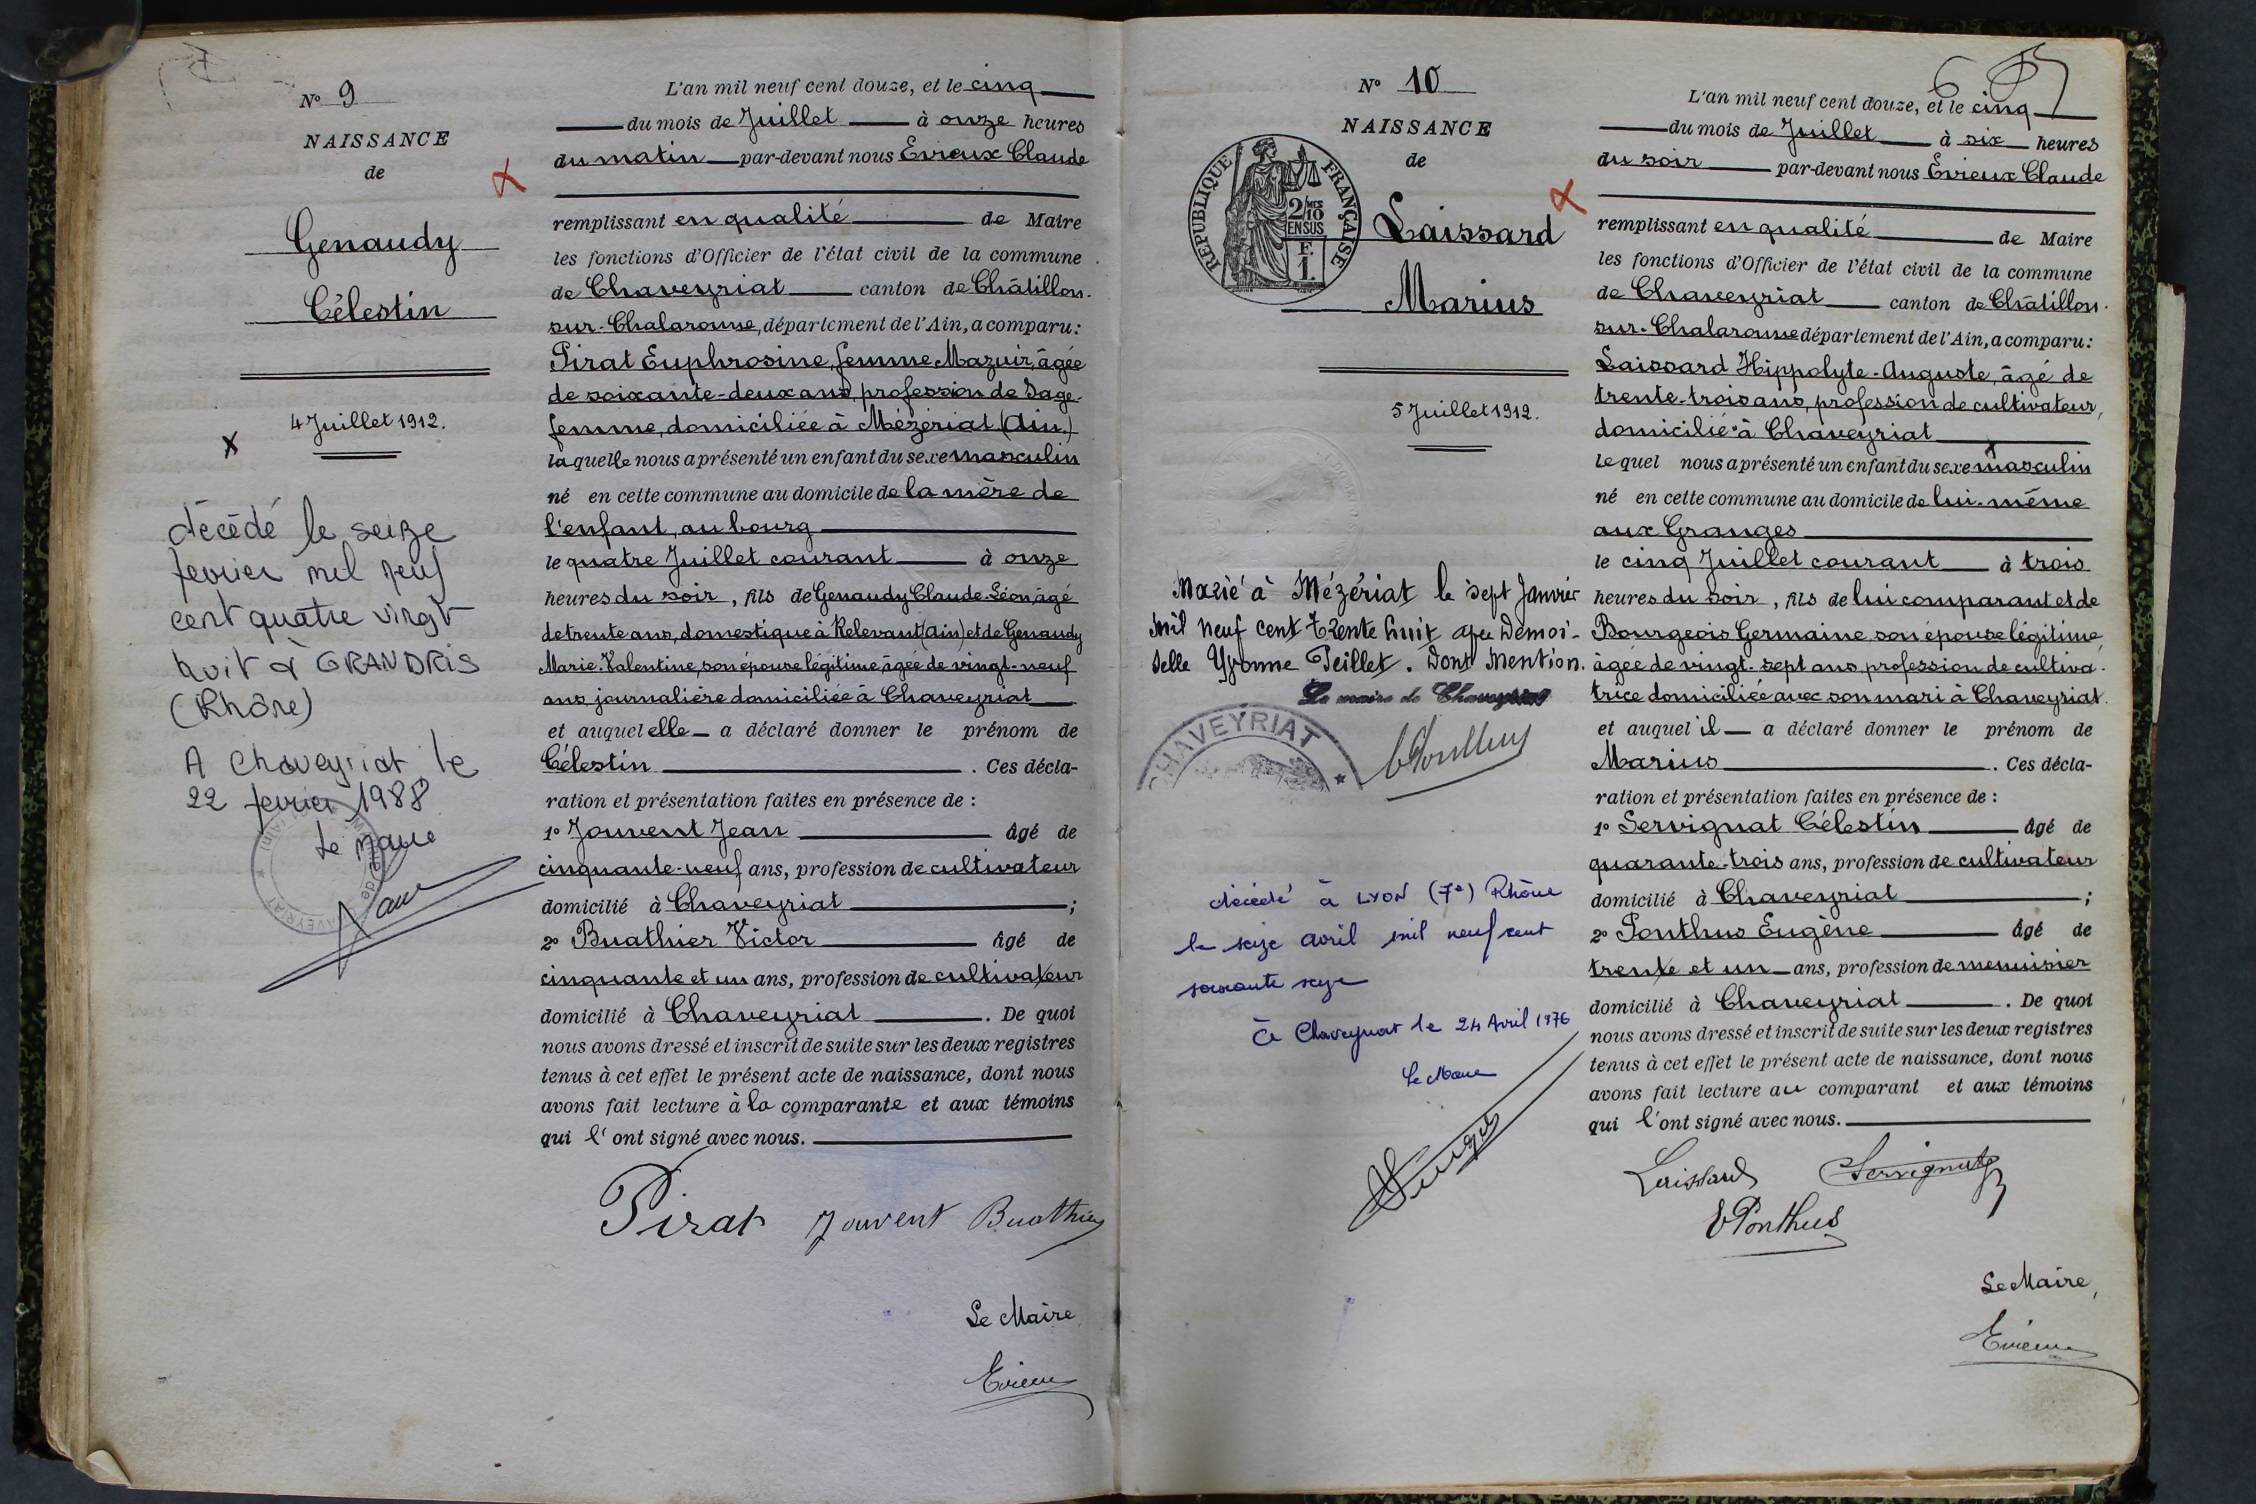 N° 9
NAISSANCE
de
Genaudy
Célestin
4 Juillet 1912.
décédé le seize
fevrier mil neuf
cent quatre vingt
huit à GRANDRIS
(Rhône)
A Chaveyriat le
22 fevrier 1988
Le Maire
L'an mil neuf cent douze, et le cinq
du mois de Juillet à onze heures
du matin par-devant nous Evieux Claude
remplissant en qualité de Maire
les fonctions d'Officier de l'état civil de la commune
de Chaveyriat canton de Châtillon-
sur-Chalaronne, département de l'Ain, a comparu :
Pirat Euphrosine, femme Mazuir, âgée
de soixante-deux ans, profession de Sage-
femme, domiciliée à Mézériat (Ain)
laquelle nous a présenté un enfant du sexe masculin
né en cette commune au domicile de la mère de
l'enfant, au bourg
le quatre Juillet courant à onze
heures du soir, fils de Genaudy Claude-Léon, âgé
de trente ans, domestique à Relevant (Ain) et de Genaudy
Marie-Valentine, son épouse légitime, âgée de vingt-neuf
ans journalière domiciliée à Chaveyriat
et auquel elle a déclaré donner le prénom de
Célestin . Ces décla-
ration et présentation faites en présence de :
1° Jouvent Jean âgé de
cinquante-neuf ans, profession de cultivateur
domicilié à Chaveyriat ;
2° Buathier Victor âgé de
cinquante et un ans, profession de cultivateur
domicilié à Chaveyriat . De quoi
nous avons dressé et inscrit de suite sur les deux registres
tenus à cet effet le présent acte de naissance, dont nous
avons fait lecture à la comparante et aux témoins
qui l'ont signé avec nous.
Pirat Jouvent Buathier
Le Maire,
Evieux
N° 10
NAISSANCE
de
RÉPUBLIQUE FRANÇAISE
2/10 MES
EN SUS
F.
1.
Laissard
Marius
5 Juillet 1912.
Marié à Mézériat le sept Janvier
mil neuf cent trente huit avec Demoi-
selle Yvonne Teillet. Dont Mention.
Le maire de Chaveyriat
CHAVEYRIAT
décédé à LYON (7e) Rhône
le seize avril mil neuf cent
soixante seize
à Chaveyriat le 24 Avril 1976
Le Maire
L'an mil neuf cent douze, et le cinq
du mois de Juillet à six heures
du soir par-devant nous Evieux Claude
remplissant en qualité de Maire
les fonctions d'Officier de l'état civil de la commune
de Chaveyriat canton de Châtillon-
sur-Chalaronne département de l'Ain, a comparu :
Laissard Hippolyte-Auguste, âgé de
trente-trois ans, profession de cultivateur,
domicilié à Chaveyriat
lequel nous a présenté un enfant du sexe masculin
né en cette commune au domicile de lui-même
aux Granges
le cinq Juillet courant à trois
heures du soir, fils de lui comparant et de
Bourgeois Germaine son épouse légitime,
âgée de vingt-sept ans, profession de cultiva-
trice domiciliée avec son mari à Chaveyriat.
et auquel il a déclaré donner le prénom de
Marius . Ces décla-
ration et présentation faites en présence de :
1° Servignat Célestin âgé de
quarante-trois ans, profession de cultivateur
domicilié à Chaveyriat ;
2° Ponthus Eugène âgé de
trente et un ans, profession de menuisier
domicilié à Chaveyriat . De quoi
nous avons dressé et inscrit de suite sur les deux registres
tenus à cet effet le présent acte de naissance, dont nous
avons fait lecture au comparant et aux témoins
qui l'ont signé avec nous.
Laissard Servignat
E Ponthus
Le Maire,
Evieux